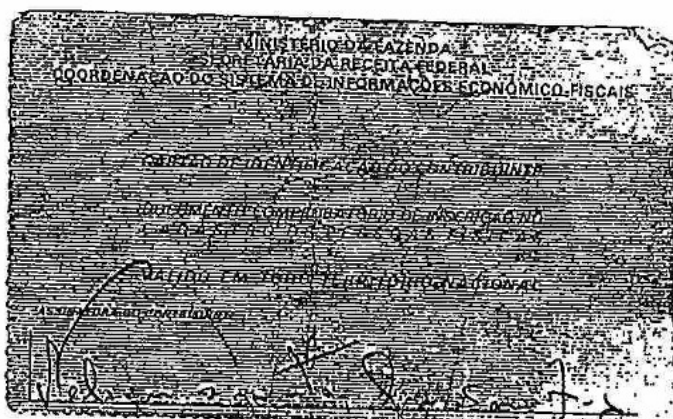 MINISTÉRIO DA FAZENDA
SECRETARIA DA RECEITA FEDERAL
COORDENAÇÃO DO SISTEMA DE INFORMAÇÕES ECONÔMICO-FISCAIS
CARTÃO DE IDENTIFICAÇÃO DO CONTRIBUINTE
DOCUMENTO COMPROBATÓRIO DE INSCRIÇÃO NO
CADASTRO DE PESSOAS FÍSICAS
VÁLIDO EM TODO TERRITÓRIO NACIONAL
ASSINATURA DO CONTRIBUINTE